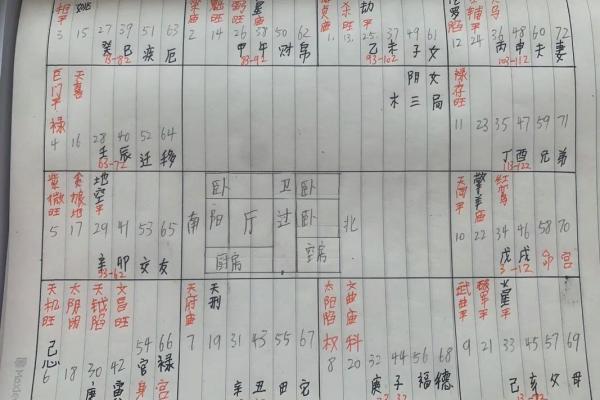 3 15 27 39 51 63
癸 巳 疾 厄
73-82
2 14 26 38 50 62
甲 午 财 帛
83-92
1 13 25 37 49 61
乙 未 子 女
93-102
12 24 36 48 60 72
丙 申 夫 妻
103-112
巨门平 禄
天喜
4 16 28 40 52 64
壬 辰 迁 移
63-72
阴 女
木 三 局
禄存旺
11 23 35 47 59 71
丁 酉 兄 弟
113-122
紫微旺
贪狼地
地空平
5 17 29 41 53 65
辛 卯 交 友
53-62
卧 卫 卧
南 阳 厅 过 卧 北
厨房 空房
天同平
擎羊庙
红鸾
10 22 34 46 58 70
戊 戌 命 宫
3-12
天机旺
太阴陷
天钺陷
文昌旺
己 心
6 18 30 42 54 66
官 禄
身 宫
天府庙
天刑
7 19 31 43 55 67
辛 丑 田 宅
太阳陷 权
文曲庙 科
8 20 32 44 56 68
庚 子 福 德
武曲平
破军平
火星平
9 21 33 45 57 69
己 亥 父 母